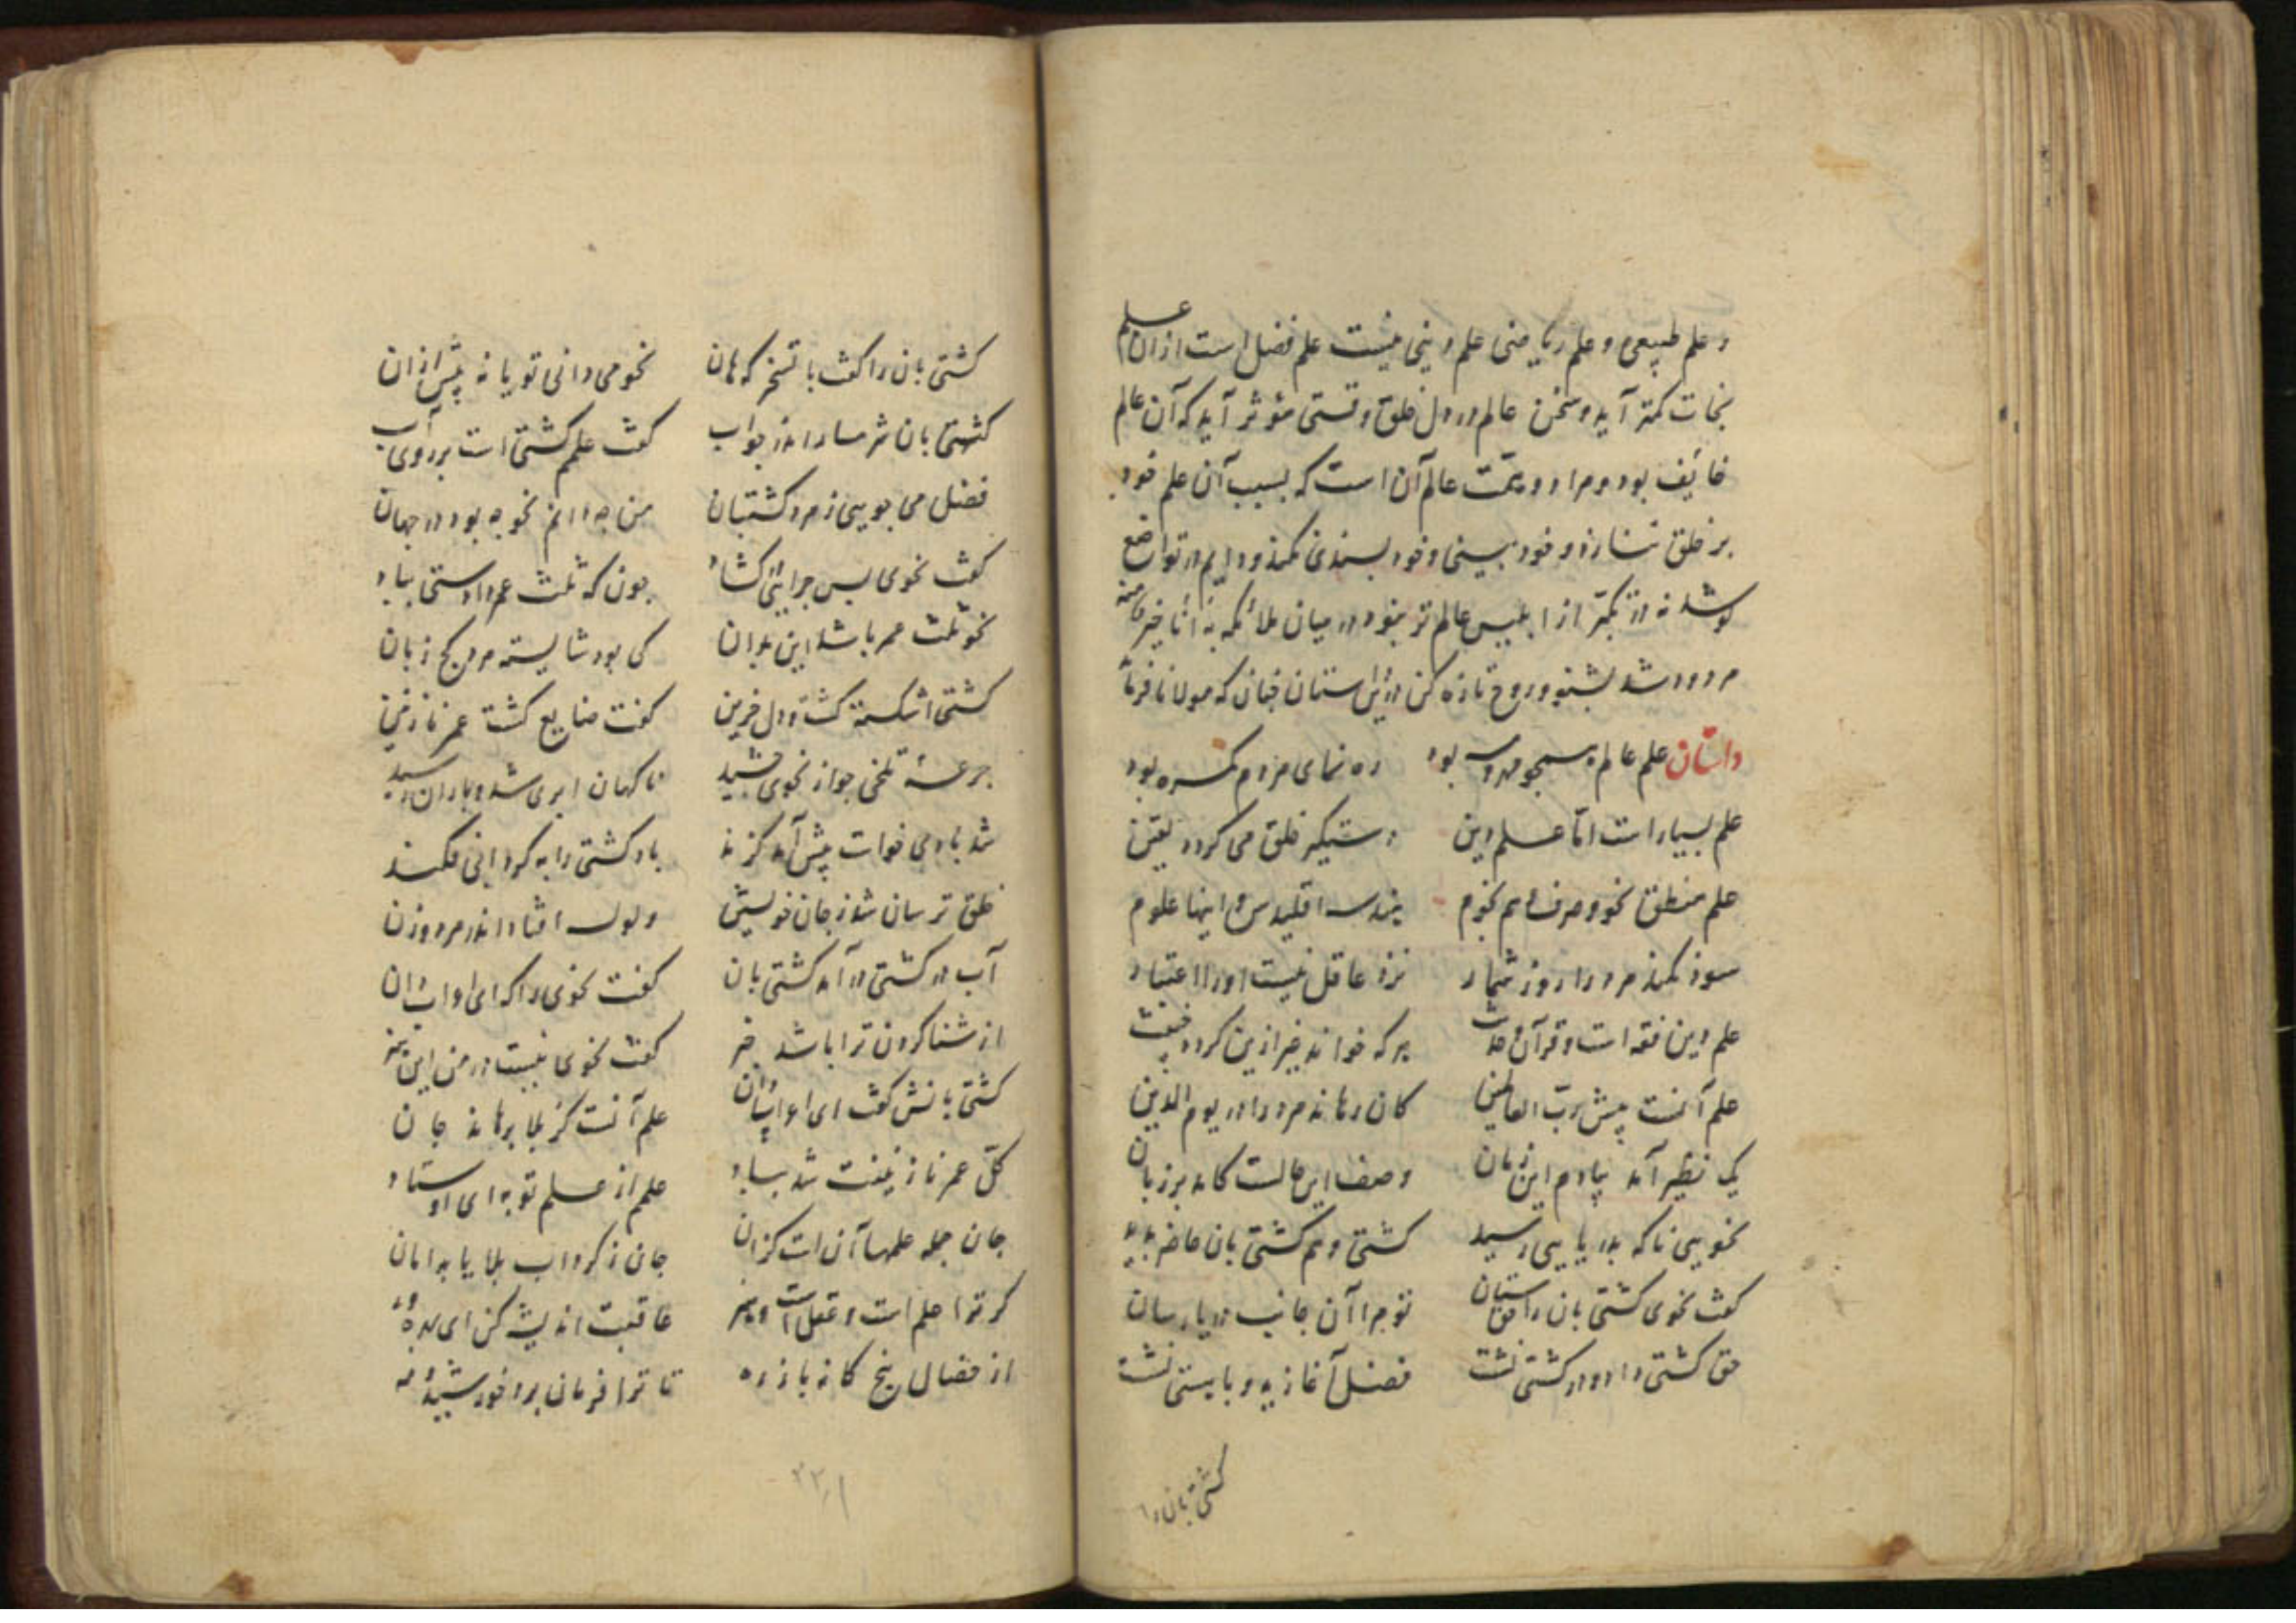 و علم طبیعی و علم ریاضی علم دینی نیست علم فضل است ازان علم
نجات کمتر آید و سخن عالم در دل خلق وقتی مؤثر آید که آن عالم
خایف بود و مراد و همّت عالم آن است که بسبب آن علم خود
بر خلق ننازد و خود بینی و خود پسندی نکند و دایم در تواضع
کوشد نه در تکبّر از ابلیس عالم تر نبود در میان ملائکه به انا خیر منه
مردود شد بشنو و روح تازه کن درین داستان چنان که مولانا فرماید
داستان علم عالم بود ره نمای مردم کمره بود
علم بسیار است امّا علم دین دستیکیر خلق می کردد یقین
علم منطق نحو و صرف و هم نجوم هندسه اقلیدس و اینها علوم
سود نکند مرد را روز شمار نزد عاقل نیست او را اعتبار
علم دین فقه است و قرآن و حدیث هر که خواند غیر ازین کردد خبیث
علم آنست پیش ربّ العالمین کان رهاند مرد را در یوم الدین
یک نظیر آمد بیادم این زمان وصف این حالست کامد بر زبان
نحویی ناکه بدریایی رسید کشتی و هم کشتی بان حاضر بدید
کفت نحوی کشتی بان را حق ستان تو مرا آن جانب دریا رسان
حق کشتی داد و در کشتی نشست فضل آغازید و بابستی نشست
کشتی بان را
کشتی بان را کفت با تسخر که هان نحو می دانی تو یا نه پیش ازان
کشتی بان شرمسار اندر جواب کفت علمم کشتی است بر روی آب
فضل می جویی ز مرد کشتبان من چه دانم نحو چه بود در جهان
کفت نحوی پس چرا کشاد چون که ثلث عمر دادستی بباد
نحو ثلث عمر باشد این بدان کی بود شایسته مرد کج زبان
کشتی اشکسته کشت و دل حزین کفت ضایع کشت عمر نازنین
جرعهٔ تلخی چو از نحوی چشید ناکهان ابری شد و باران رسید
شد بادی خوات پیش آمد کزند باد کشتی را به کردابی فکند
خلق ترسان شد ز جان خویشتن ولوله افتاد اندر مرد و زن
آب در کشتی درآمد کشتی بان کفت نحوی را که ای اوات دان
از شنا کردن ترا باشد خبر کفت نحوی نیست در من این هنر
کشتی بانش کفت ای علم آنست کز بلا برهاند جان
کلّ عمر نازنینت شد بباد علم از علم تو به ای اوستاد
جان جمله علمها آن است کزان جان ز کرداب بلا یابد امان
کر ترا علم است و عقل است و هنر عاقبت اندیشه کن ای بهره ور
از خصال پنج کانه باز ره تا ترا فرمان برد خورشید و مه
۲۲۱